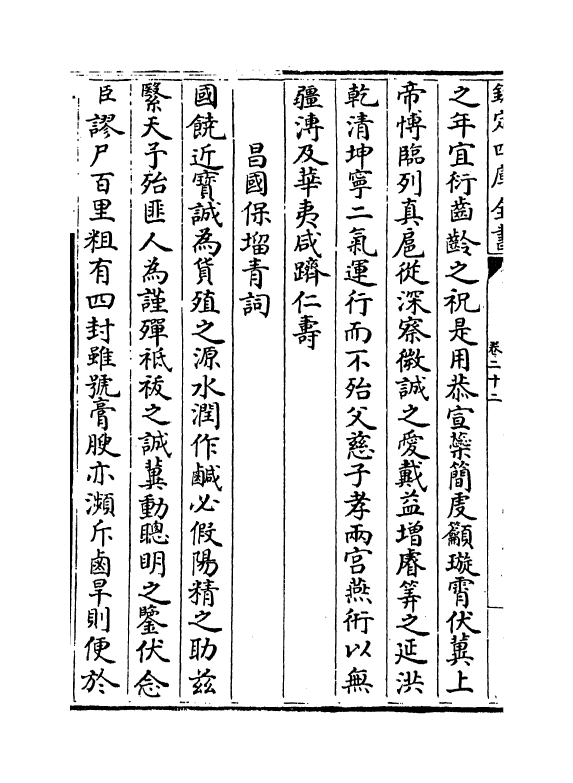 欽定四庫全書
卷二十二
之年宜衍齒齡之祝是用恭宣蘂簡虔籲璇霄伏冀上
帝愽臨列真扈從深察微誠之愛戴益增睿筭之延洪
乾清坤寧二氣運行而不殆父慈子孝兩宫燕衎以無
疆溥及華夷咸躋仁壽
昌國保塯青詞
國饒近寶誠為貨殖之源水潤作鹹必假陽精之助兹
繄天子殆匪人為謹殫袛祓之誠冀動聰明之鑒伏念
臣謬尸百里粗有四封雖號膏腴亦瀕斥鹵旱則便於